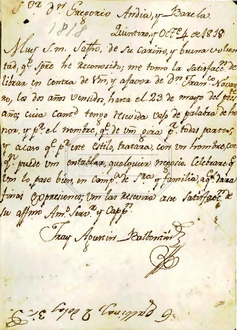 Sor dn Gregorio Andia, y Barela
1818 Quintana, y Octe 4 de 1818
Muy S.r m. Satho. de Su Cariño, y buena volun
tad, qe Spre he reconosido, me tomo la Satisfacn de
librar en contra de Vm, y afavor de dn Franco Navarro
los dos años venido, hasta el 23 de mayo del pres
año; cuia cantd tengo resevida vajo de palabra de ho
nor, y pr el nombre, qe de vm gira pr todas partes,
y acaso qe pr este estilo, tratara con un hombre, con
qn puede vm entablar, qualquier negosio. Celebrare qe
vm lo pase bien, en compa de Sra y familia, aqn dara
finas expresiones, vm las resevira a su satisfacn de
su affmo Amo Servr y Cappn
Fray Agustin Balbontin